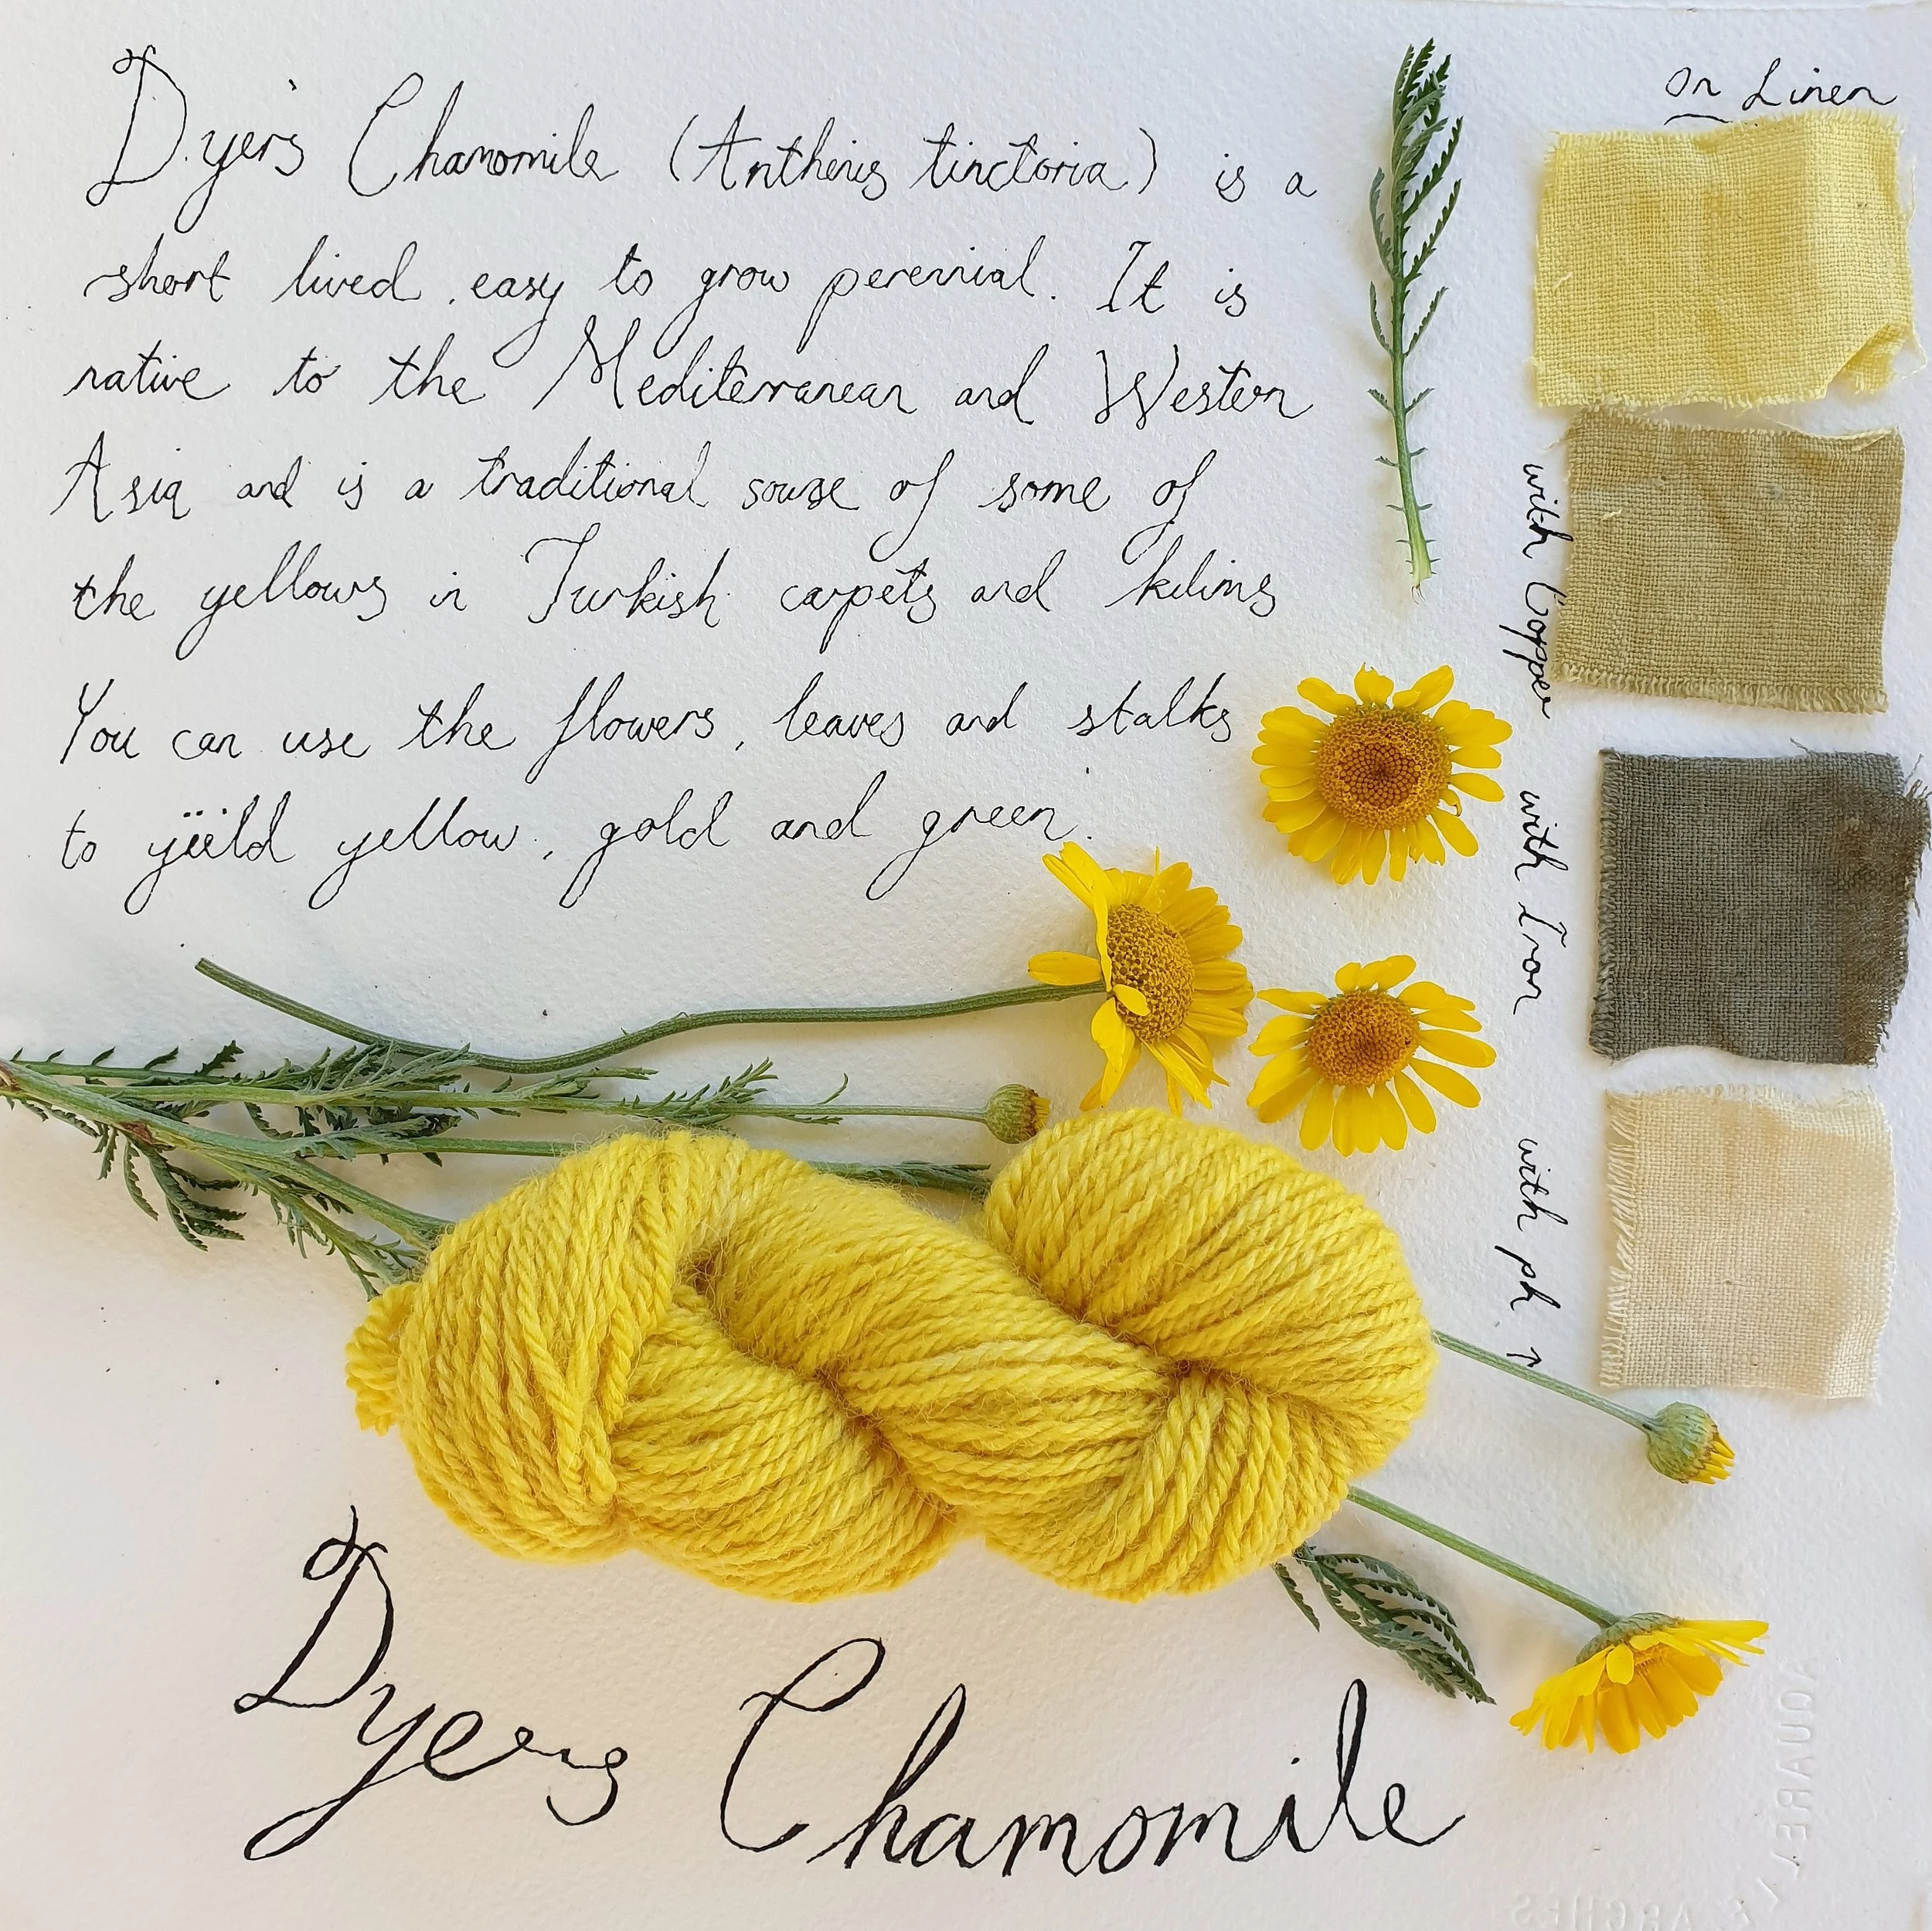 Dyer's Chamomile (Anthemis tinctoria) is a
short lived, easy to grow perennial. It is
native to the Mediterranean and Western
Asia and is a traditional sourse of some of
the yellows in Turkish carpets and kilims
You can use the flowers, leaves and stalks
to yiëld yellow, gold and green.
On Linen
with Copper
with Iron
with ph ↑
Dyers Chamomile
AQUARELLE
ARCHES